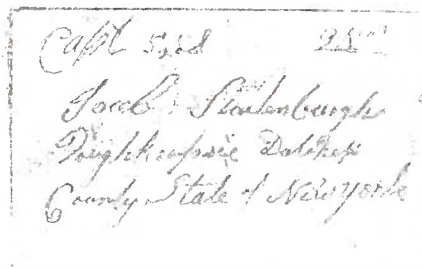 Capt
Jacob Stoutenburgh
Poughkeepsie Dutchess
County State of New York